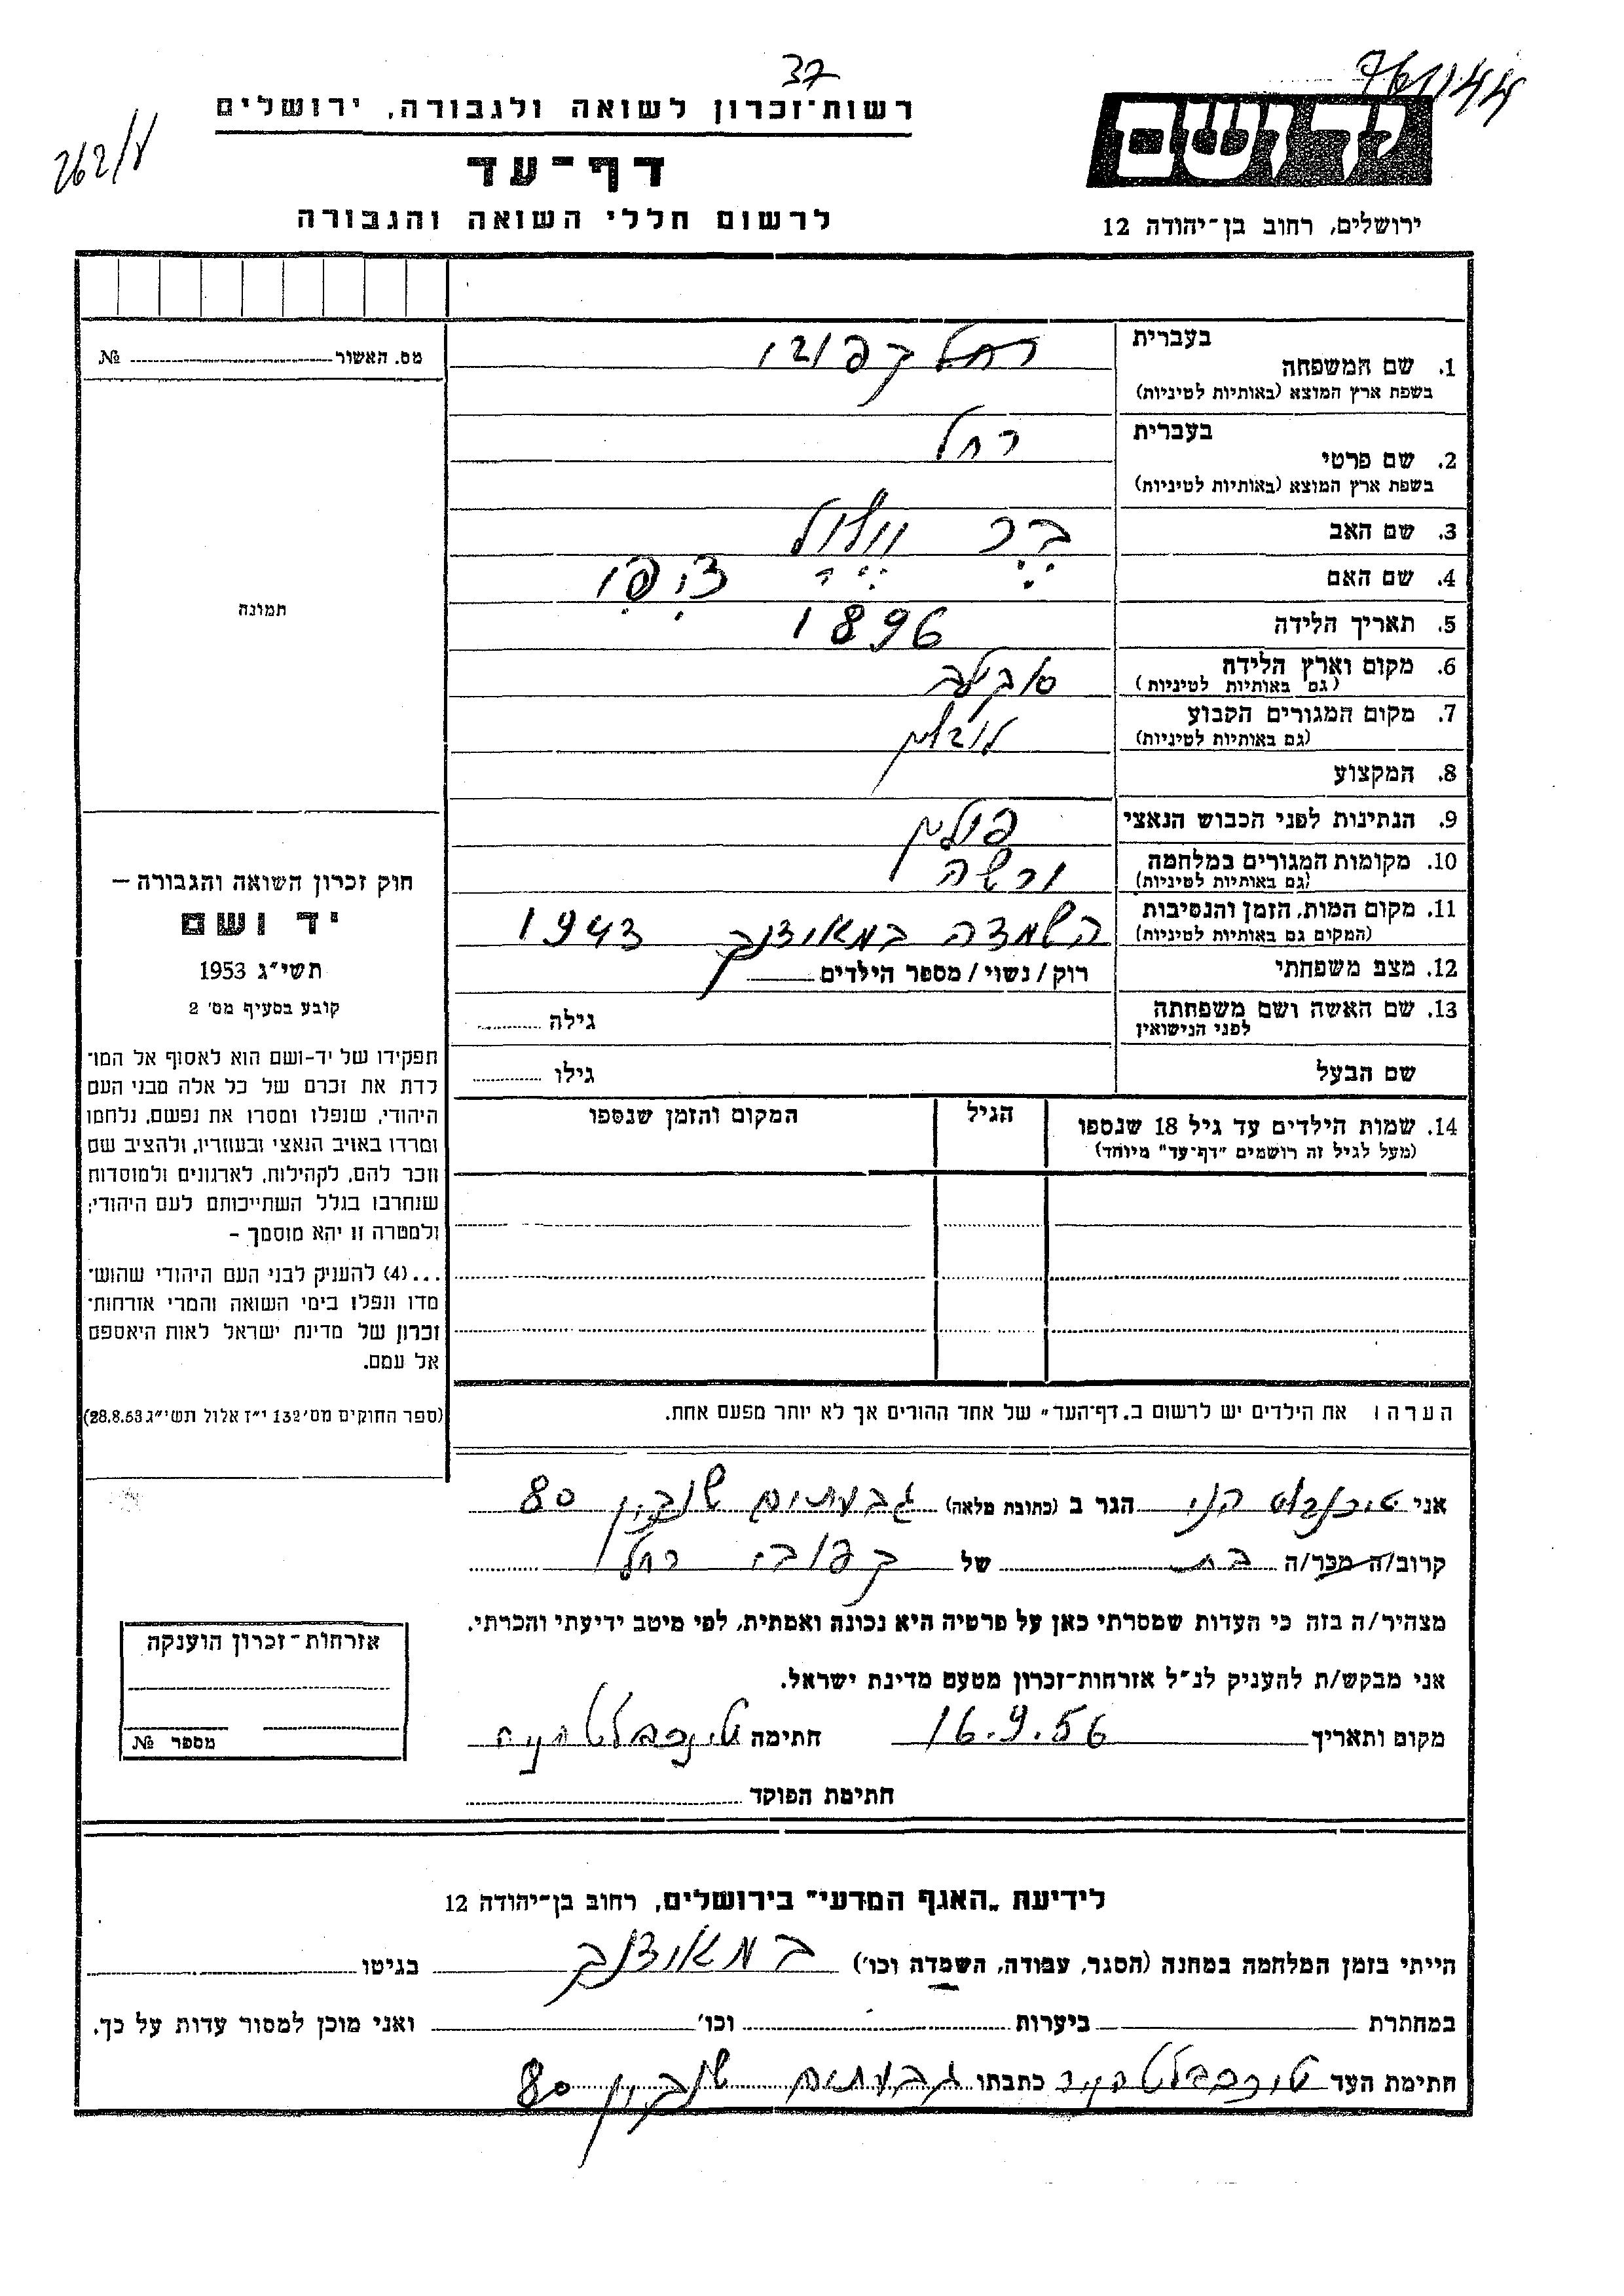 37
רשות־זכרון לשואה ולגבורה, ירושלים
דף־עד
לרשום חללי השואה והגבורה
יד ושם
ירושלים, רחוב בן־יהודה 12
מס. האשור № 
בעברית
1. שם המשפחה
בשפת ארץ המוצא (באותיות לטיניות)
רחל
בעברית
2. שם פרטי רחל
בשפת ארץ המוצא (באותיות לטיניות)
3. שם האב
4. שם האם
5. תאריך הלידה 1896
6. מקום וארץ הלידה
(גם באותיות לטיניות)
7. מקום המגורים הקבוע לובלין
(גם באותיות לטיניות)
8. המקצוע
9. הנתינות לפני הכבוש הנאצי פולין
10. מקומות המגורים במלחמה ורשה
(גם באותיות לטיניות)
11. מקום המות, הזמן והנסיבות 1943
(המקום גם באותיות לטיניות)
12. מצב משפחתי רוק/נשוי/מספר הילדים
13. שם האשה ושם משפחתה גילה
לפני הנישואין
שם הבעל גילו
14. שמות הילדים עד גיל 18 שנספו הגיל המקום והזמן שנספו
(מעל לגיל זה רושמים "דף־עד" מיוחד)
הערה: את הילדים יש לרשום ב„דף־העד" של אחד ההורים אך לא יותר מפעם אחת.
תמונה
חוק זכרון השואה והגבורה —
יד ושם
תשי"ג 1953
קובע בסעיף מס' 2
תפקידו של יד-ושם הוא לאסוף אל המו־
לדת את זכרם של כל אלה מבני העם
היהודי, שנפלו ומסרו את נפשם, נלחמו
ומרדו באויב הנאצי ובעוזריו, ולהציב שם
וזכר להם, לקהילות, לארגונים ולמוסדות
שנחרבו בגלל השתייכותם לעם היהודי;
ולמטרה זו יהא מוסמך -
...(4) להעניק לבני העם היהודי שהוש־
מדו ונפלו בימי השואה והמרי אזרחות־
זכרון של מדינת ישראל לאות היאספם
אל עמם.
(ספר החוקים מס' 132 י"ז אלול תשי"ג 28.8.53)
אני הגר ב (כתובת מלאה) גבעתיים 80
קרוב/ה מכר/ה בת של רחל
מצהיר/ה בזה כי העדות שמסרתי כאן על פרטיה היא נכונה ואמתית, לפי מיטב ידיעתי והכרתי.
אני מבקש/ת להעניק לנ"ל אזרחות־זכרון מטעם מדינת ישראל.
מקום ותאריך 16.9.56 חתימה
חתימת הפוקד
אזרחות־זכרון הוענקה
מספר №
לידיעת „האגף המדעי" בירושלים, רחוב בן־יהודה 12
הייתי בזמן המלחמה במחנה (הסגר, עבודה, השמדה וכו') בגיטו
במחתרת ביערות וכו' ואני מוכן למסור עדות על כך.
חתימת העד כתבתו גבעתיים 80